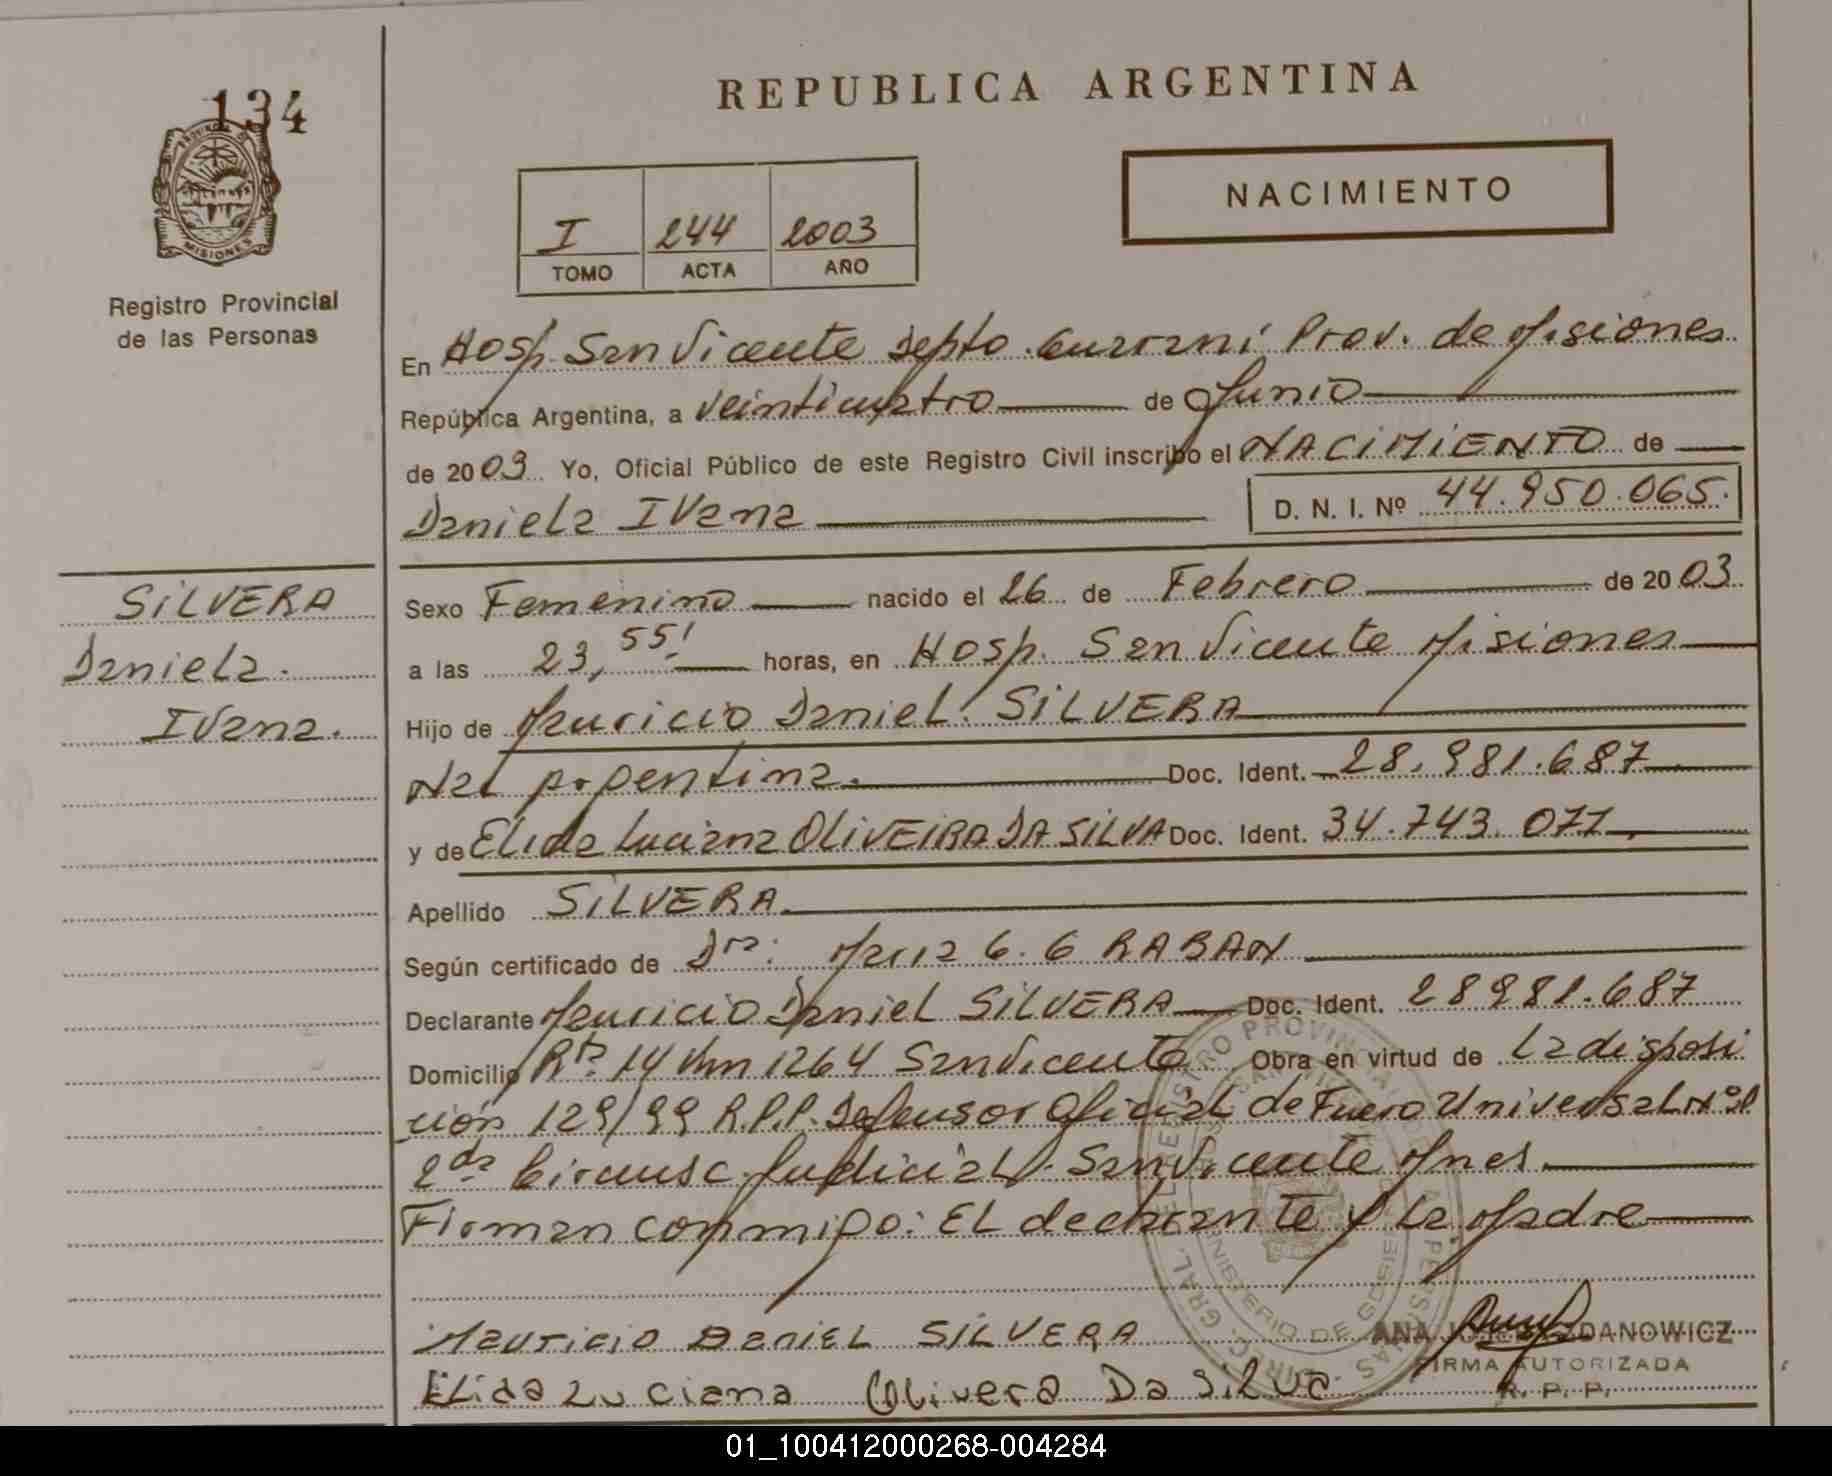 134
REPUBLICA ARGENTINA
PROVINCIA DE
MISIONES
Registro Provincial
de las Personas
I 244 2003
TOMO ACTA AÑO
NACIMIENTO
En Hosp. San Vicente Depto. Guaraní Prov. de Misiones.
República Argentina, a veinticuatro de Junio
de 2003 Yo, Oficial Público de este Registro Civil inscribo el NACIMIENTO de
Daniela Ivana
D. N. I. Nº 44.950.065.
SILVERA
Daniela.
Ivana.
Sexo Femenino nacido el 26 de Febrero de 2003
a las 23,55' horas, en Hosp. San Vicente Misiones
Hijo de Mauricio Daniel SILVERA
Nac Argentina. Doc. Ident. 28.981.687
y de Elida Luciana OLIVEIRA DA SILVA Doc. Ident. 34.743.071
Apellido SILVERA
Según certificado de Dra: Maria G. G RABAN
Declarante Mauricio Daniel SILVERA Doc. Ident. 28981.687
Domicilio Rta. 14 Km 1264 San Vicente Obra en virtud de La disposi
ción 129/99 R.P.P. Defensor Oficial de Fuero Universal Nº
2da Circunsc. Judicial. San Vicente Mnes
Firman conmigo: El declarante y la Madre
Mauricio Daniel SILVERA
Elida Luciana Olivera Da Silva
ANA
FIRMA AUTORIZADA
R. P. P.
01_100412000268-004284